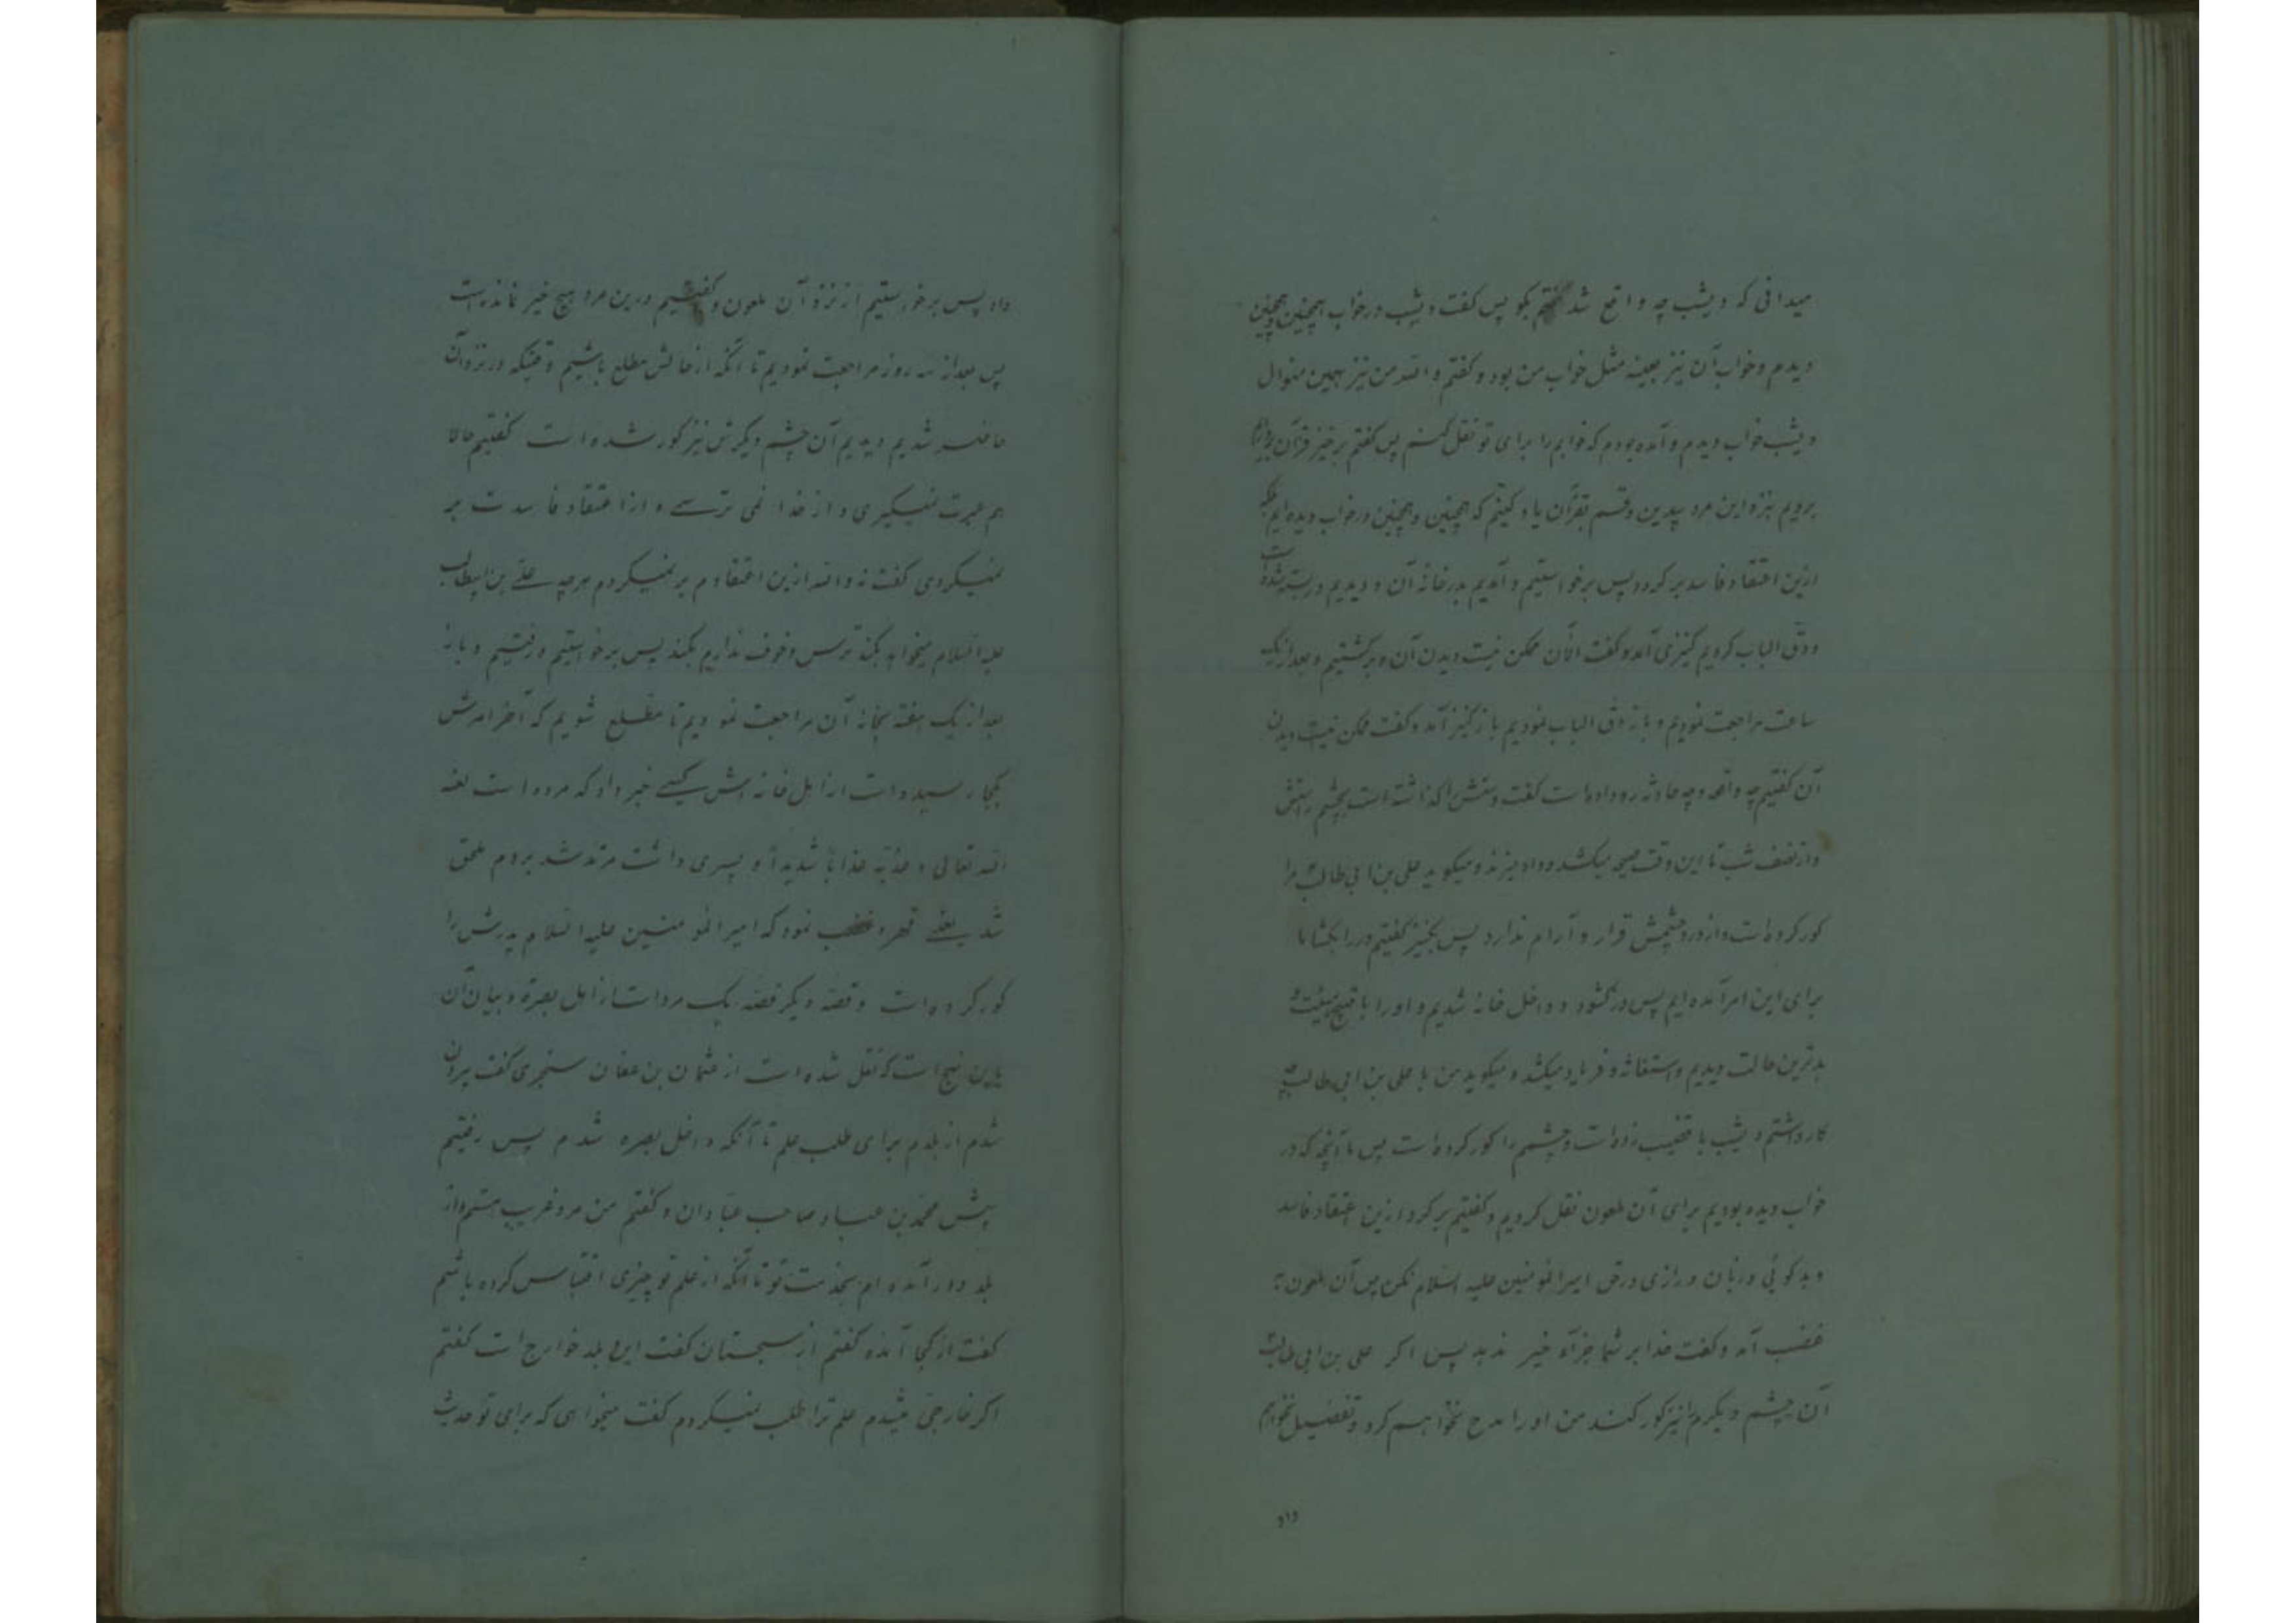 میدانی که دیشب چه واقع شد گفتم بگو پس گفت دیشب در خواب همچنین و همچنین
دیدم و خواب آن نیز بعینه مثل خواب من بود و گفتم والله من نیز بهمین منوال
دیشب خواب دیدم و آمده بودم که خوابم را برای تو نقل کنم پس گفتم برخیز قرآن برداریم
برویم بنزد این مرد بیدین و قسم بقرآن یاد کنیم که همچنین و همچنین در خواب دیده ایم بلکه
ازین اعتقاد فاسد برگردد پس برخواستیم و آمدیم بدر خانه آن و دیدیم در بسته شده است
و دق الباب کردیم کنیزی آمد و گفت الآن ممکن نیست دیدن آن و برگشتیم و بعد از یک
ساعت مراجعت نمودیم و باز دق الباب نمودیم باز کنیز آمد و گفت ممکن نیست دیدن
آن گفتیم چه واقعه و چه حادثه رو داده است گفت دستش را گذاشته است بچشم راستش
و از نصف شب تا این وقت صیحه میکشد و داد میزند و میگوید علی بن ابی طالب مرا
کور کرده است و از درد چشمش قرار و آرام ندارد پس بکنیز گفتیم در را بگشا ما
برای این امر آمده ایم پس در گشود و داخل خانه شدیم و او را با قبیح هیئت و
بدترین حالت دیدیم و استغاثه و فریاد میکشد و میگوید من با علی بن ابی طالب چه
کار داشتم دیشب با قضیب زده است و چشمم را کور کرده است پس ما آنچه که در
خواب دیده بودیم برای آن ملعون نقل کردیم و گفتیم برگرد ازین اعتقاد فاسد
و بدگوئی و زبان درازی در حق امیر المؤمنین علیه السلام نکن پس آن ملعون به
غضب آمد و گفت خدا بر شما جزآء خیر ندهد پس اگر علی بن ابی طالب
آن چشم دیگرم را نیز کور کند من او را مدح نخواهم کرد و تفضیل نخواهم
داد
داد پس برخواستیم از نزد آن ملعون و گفتیم درین مرد هیچ خیر نمانده است
پس بعد از سه روز مراجعت نمودیم تا آنکه از حالش مطلع باشیم وقتیکه در نزد آن
حاضر شدیم دیدیم آن چشم دیگرش نیز کور شده است گفتیم حالا
هم عبرت نمیگیری و از خدا نمی ترسی و از اعتقاد فاسدت بر
نمیگردی گفت نه والله ازین اعتقادم بر نمیگردم هرچه علی بن ابیطالب
علیه السلام میخواهد بکند ترس و خوف ندارم بکند پس برخواستیم و رفتیم و باز
بعد از یک هفته بخانه آن مراجعت نمودیم تا مطلع شویم که آخر امرش
بکجا رسیده است از اهل خانه اش کسی خبر داد که مرده است لعنه
الله تعالی و عذبه عذابا شدیدا و پسری داشت مرتد شد بروم ملحق
شد یعنی قهر و غضب نمود که امیر المؤمنین علیه السلام پدرش را
کور کرده است و قصه دیگر قصه یک مرد است از اهل بصره و بیان آن
باین نهج است که نقل شده است از عثمان بن عفان سنجری گفت بیرون
شدم از بلدم برای طلب علم تا آنکه داخل بصره شدم پس رفتیم
پیش محمد بن عباد صاحب عبادان و گفتم من مرد غریب هستم و از
بلد دور آمده ام بخدمت تو تا آنکه از علم تو چیزی اقتباس کرده باشم
گفت از کجا آمده گفتم از سجستان گفت این بلد خوارج است گفتم
اگر خارجی میشدم علم ترا طلب نمیکردم گفت میخواهی که برای تو حدیث